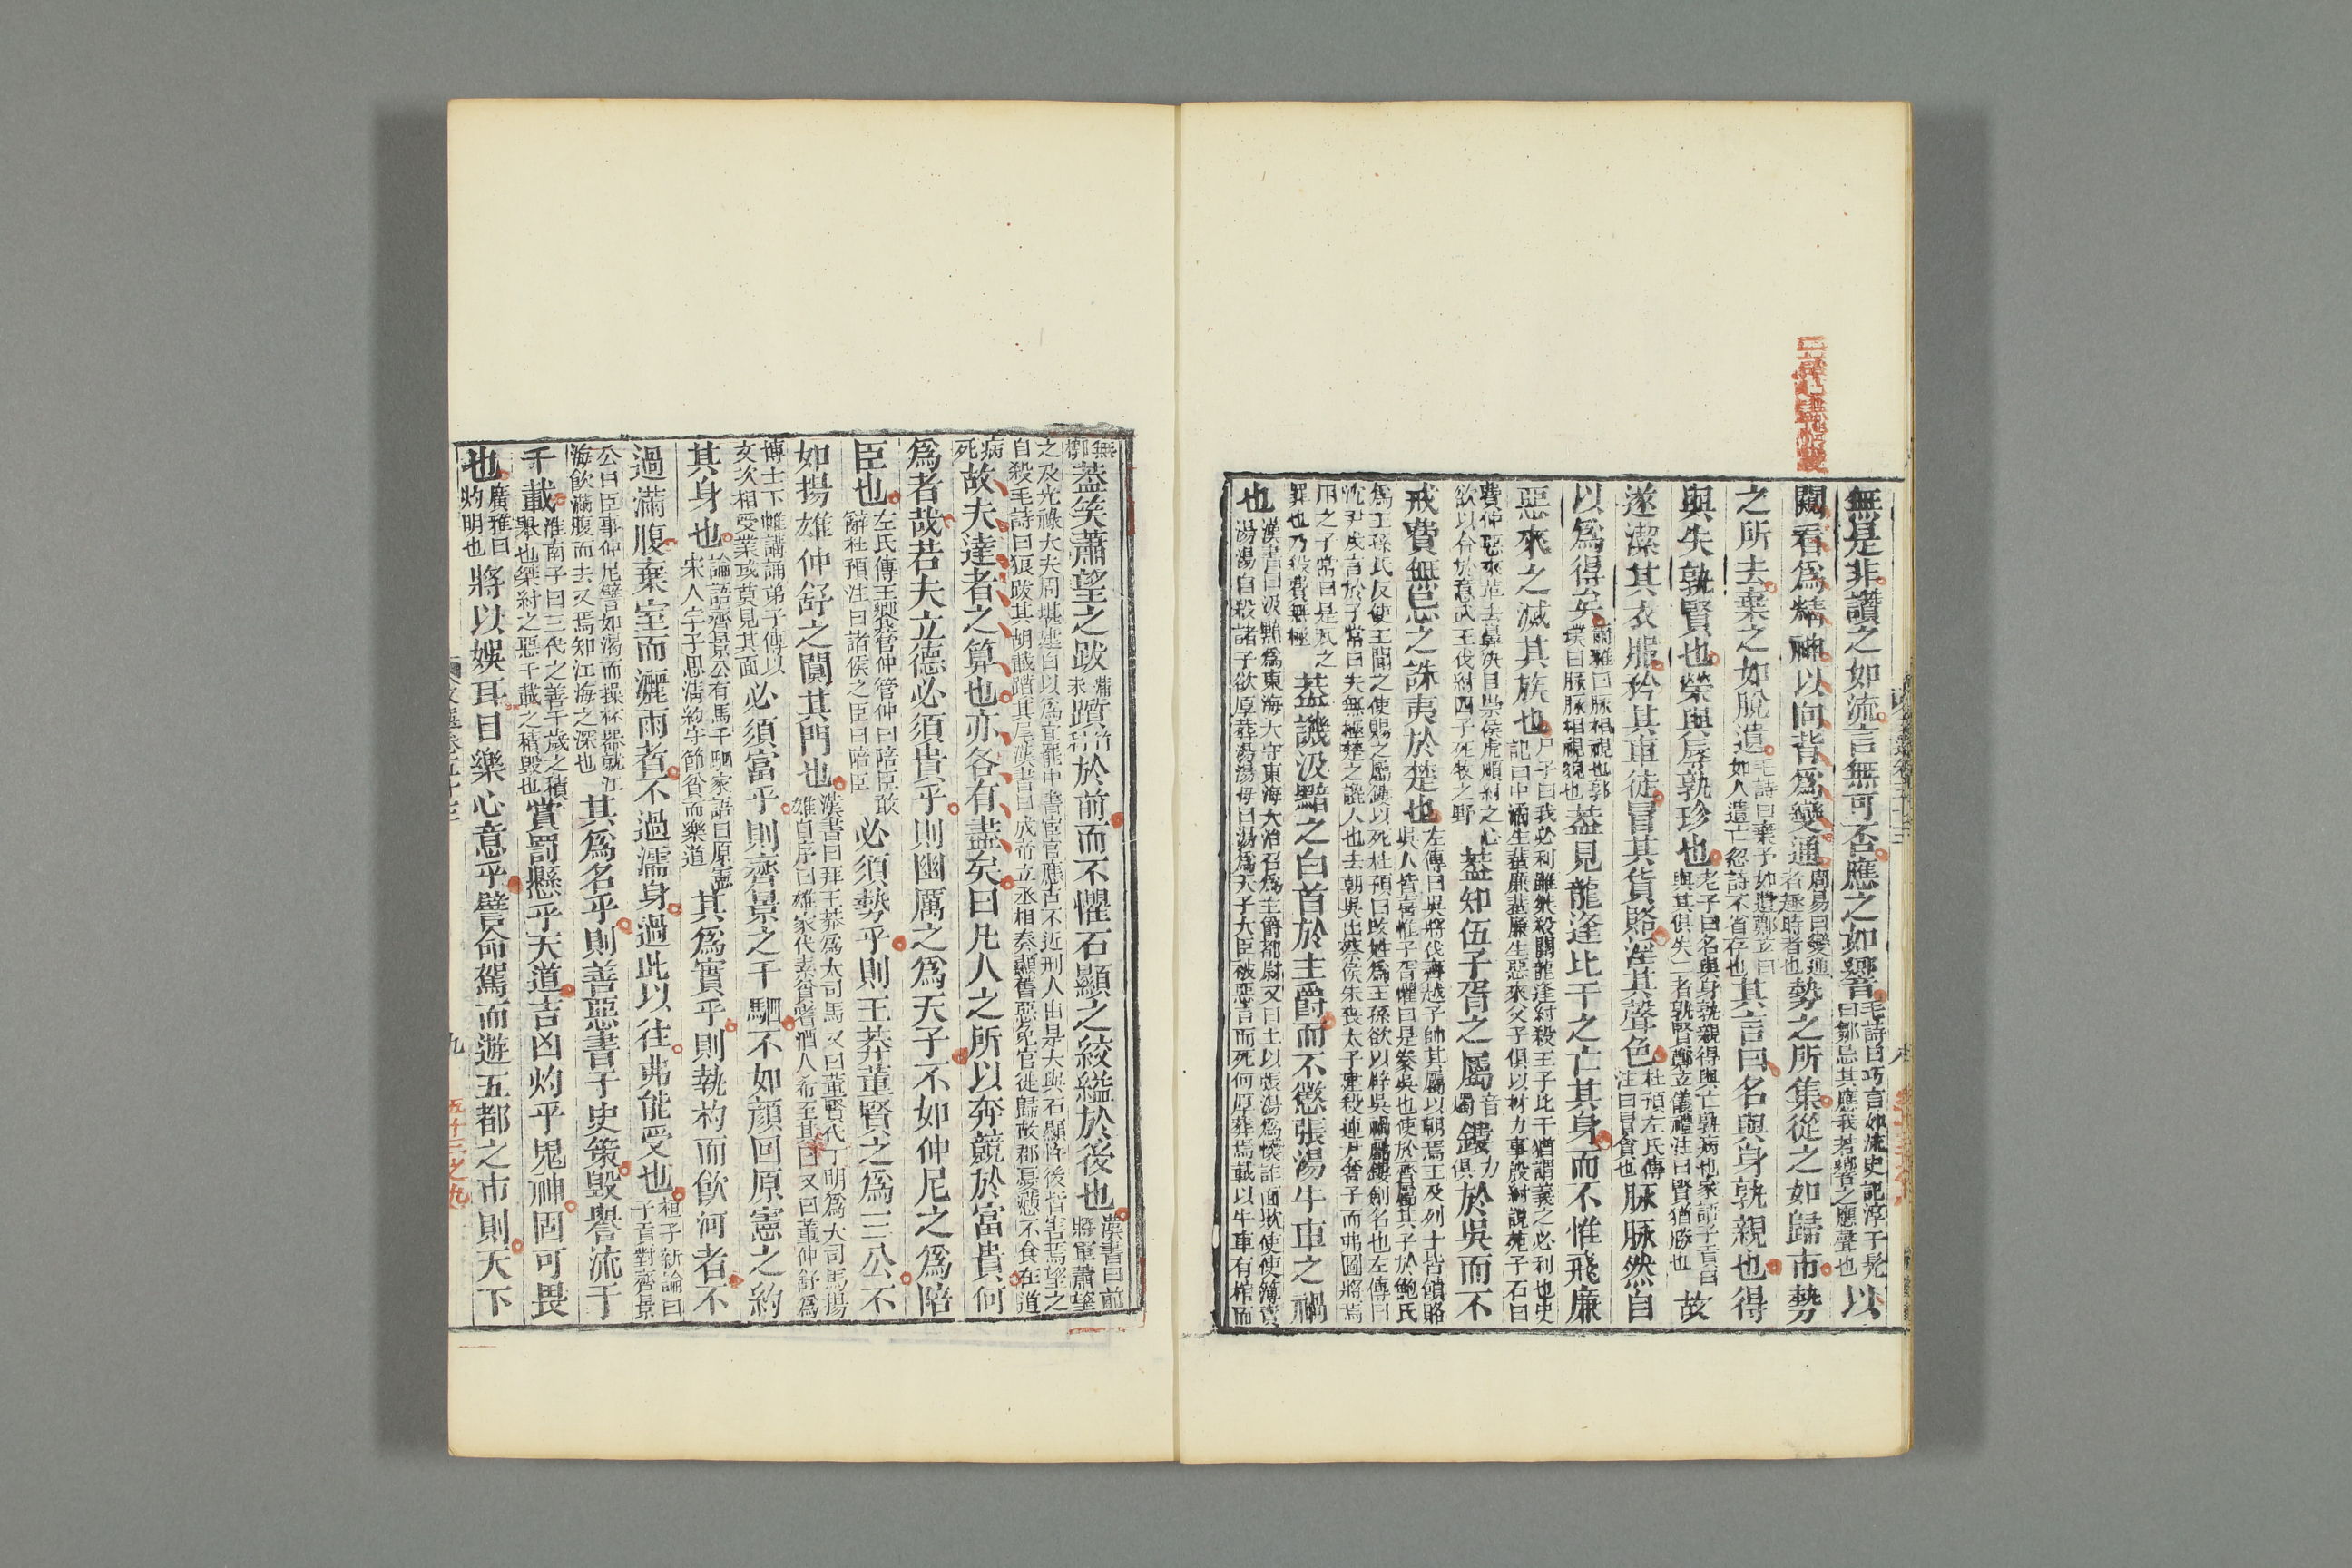 無是非讚之如流言無可否應之如響毛詩曰巧言如流史記淳于髡曰鄒忌其應我若響之應聲也以
闚看爲精神以向背爲變通周易曰變通者趣時者也勢之所集從之如歸市勢
之所去棄之如脫遺毛詩曰棄予如遺鄭玄曰如人遺亡忽詩不省存也其言曰名與身孰親也得
與失孰賢也榮與辱孰珍也老子曰名與身孰親得與亡孰病也家語子貢曰與其俱失二者孰賢鄭玄儀禮注曰賢猶勝也故
遂潔其衣服矜其車徒冒其貨賄淫其聲色杜預左氏傳注曰冒貪也脉脉然自
以爲得矣爾雅曰脉相視也郭璞曰脉脉相視貌也葢見龍逢比干之亡其身而不惟飛廉
惡來之滅其族也尸子曰我必利雖桀殺關龍逢紂殺王子比干猶謂義之必利也史記曰中潏生蜚廉蜚廉生惡來父子俱以材力事殷紂說苑子石曰
費仲惡來革去鼻決目崇侯虎順紂之心欲以合於意武王伐紂四子死牧之野葢知伍子胥之屬音燭鏤力俱於吳而不
戒費無忌之誅夷於楚也左傳曰吳將伐齊越子帥其屬以朝焉王及列士皆饋賂吳人皆喜惟子胥懼曰是豢吳也使於齊屬其子於鮑氏
爲王孫氏反使王聞之使賜之屬鏤以死杜預曰改姓爲王孫欲以辟吳禍屬鏤劍名也左傳曰沈尹戌言於子常曰夫無極楚之讒人也去朝吳出蔡侯朱喪太子建殺連尹奢子而弗圖將焉
用之子常曰是瓦之罪也乃殺費無極葢譏汲黯之白首於主爵而不懲張湯牛車之禍
也漢書曰汲黯爲東海大守東海大治召爲主爵都尉又曰上以張湯爲懷詐面欺使使簿責湯湯自殺諸子欲厚葬湯湯母曰湯爲天子大臣被惡言而死何厚葬焉載以牛車有棺而
無槨葢笑蕭望之跋蒲末躓竹利於前而不懼石顯之絞縊於後也漢書曰前將軍蕭望
之及光祿大夫周堪建白以爲宜罷中書宦官應古不近刑人由是大與石顯忤後皆害焉望之自殺毛詩曰狼跋其胡載躓其尾漢書曰成帝立丞相奏顯舊惡免官徙歸故郡憂懣不食在道
病死故夫達者之算也亦各有盡矣曰凡人之所以奔競於富貴何
爲者哉若夫立德必須貴乎則幽厲之爲天子不如仲尼之爲陪
臣也左氏傳王饗管仲管仲曰陪臣敢辭杜預注曰諸侯之臣曰陪臣必須勢乎則王莽董賢之爲三公不
如揚雄仲舒之闃其門也漢書曰拜王莽爲大司馬又曰董賢代丁明爲大司馬揚雄自序曰雄家代素貧嗜酒人希至其門又曰董仲舒爲
博士下帷講誦弟子傳以文次相受業或莫見其面必須富乎則齊景之千駟不如顔回原憲之約
其身也論語齊景公有馬千駟家語曰原憲宋人字子思淸約守節貧而樂道其爲實乎則執杓而飲河者不
過滿腹棄室而灑雨者不過濡身過此以往弗能受也桓子新論曰子貢對齊景
公曰臣事仲尼譬如渴而操杯器就江海飲滿腹而去又焉知江海之深也其爲名乎則善惡書于史策毀譽流于
千載淮南子曰三代之善千歲之積譽也桀紂之惡千載之積毀也賞罰懸乎天道吉凶灼乎鬼神固可畏
也廣雅曰灼明也將以娛耳目樂心意乎譬命駕而遊五都之市則天下
九
五十三之九